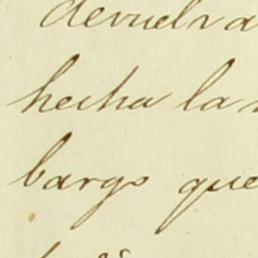 devuelva
hecha la
bargo que